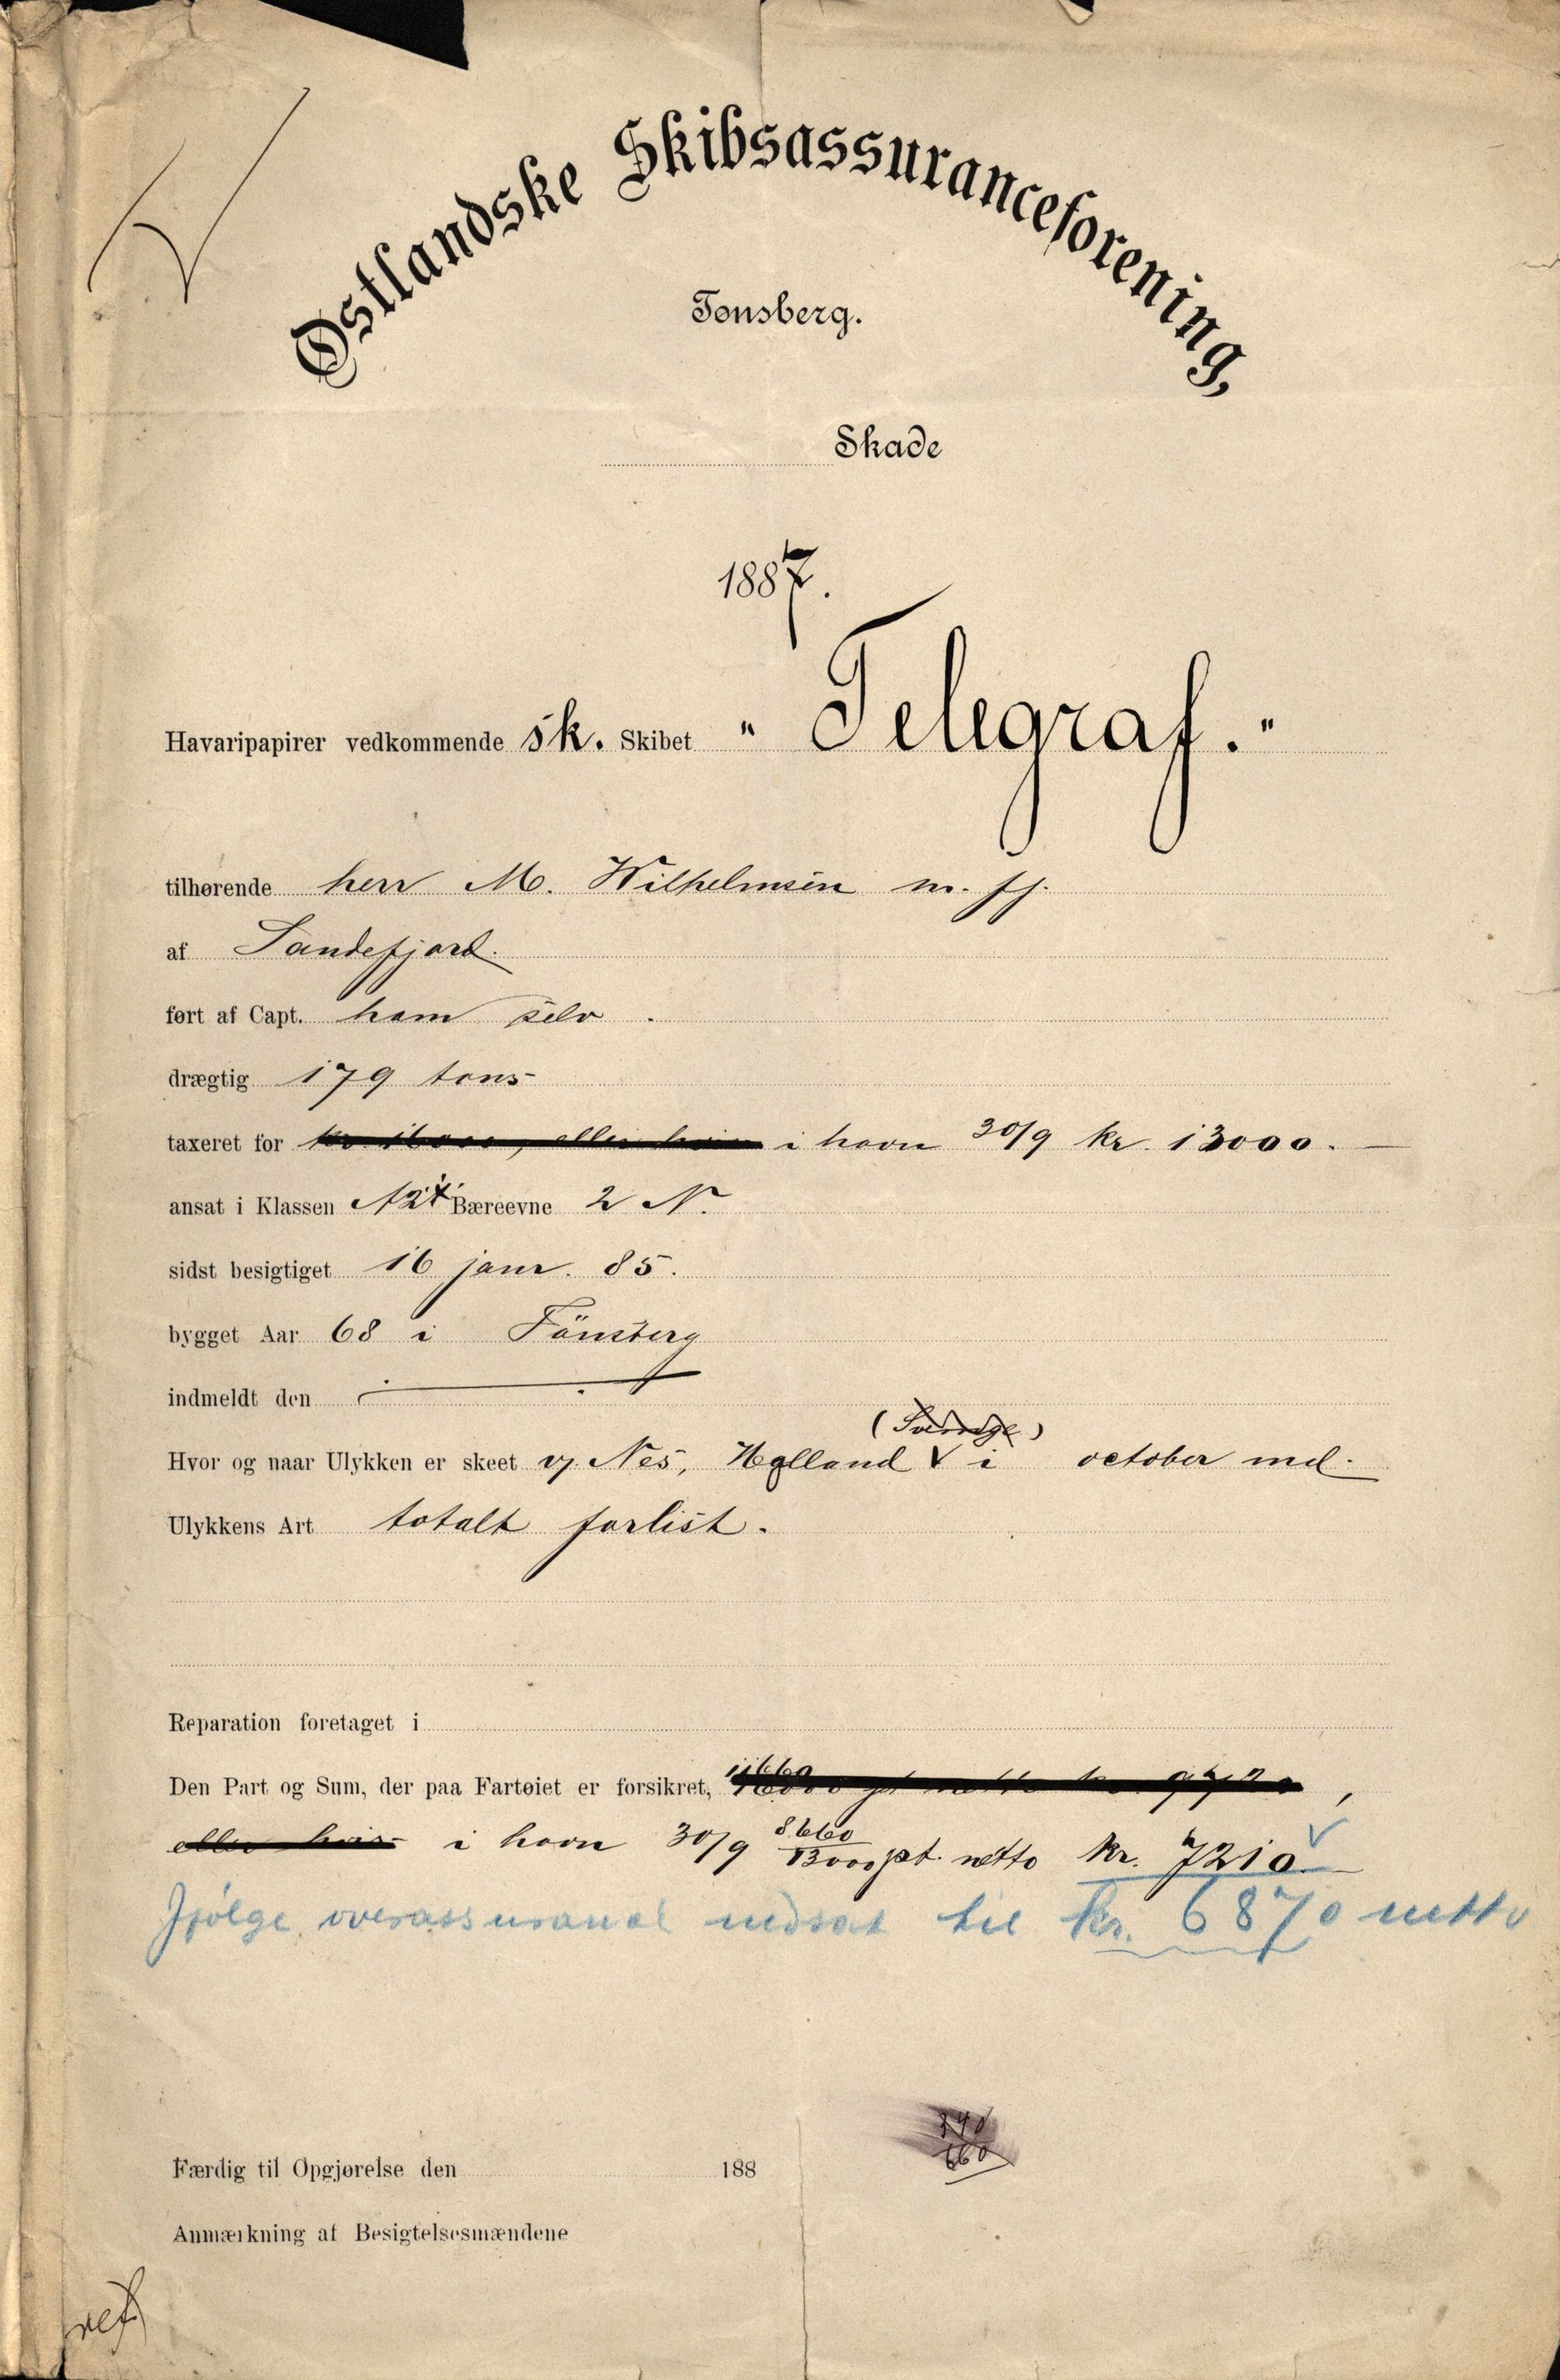 Østlandske Skibsassuranceforening,
Tønsberg.
Skade
1887.
Havaripapirer vedkommende sk. Skibet " Telegraf. "
tilhørende herr M. Wilhelmsen m. fl.
af Sandefjord.
ført af Capt. ham selv.
drægtig 179 tons
taxeret for kr. 16000, eller hvis i havn 30/9 kr. 13000.
ansat i Klassen A2 Bæreevne 2 N.
sidst besigtiget 16 janr. 85.
bygget Aar 68 i Tönsberg
indmeldt den
(Sverige)
Hvor og naar Ulykken er skeet v/ Nes, Holland i october md.
Ulykkens Art totalt forlist.
Reparation foretaget i
Den Part og Sum, der paa Fartøiet er forsikret,
eller hvis i havn 30/9 8660/13000 pt. netto kr. 7210.
Ifölge overassurance nedsat til kr. 6870 netto
340
660
Færdig til Opgjørelse den 188
Anmærkning af Besigtelsesmændene